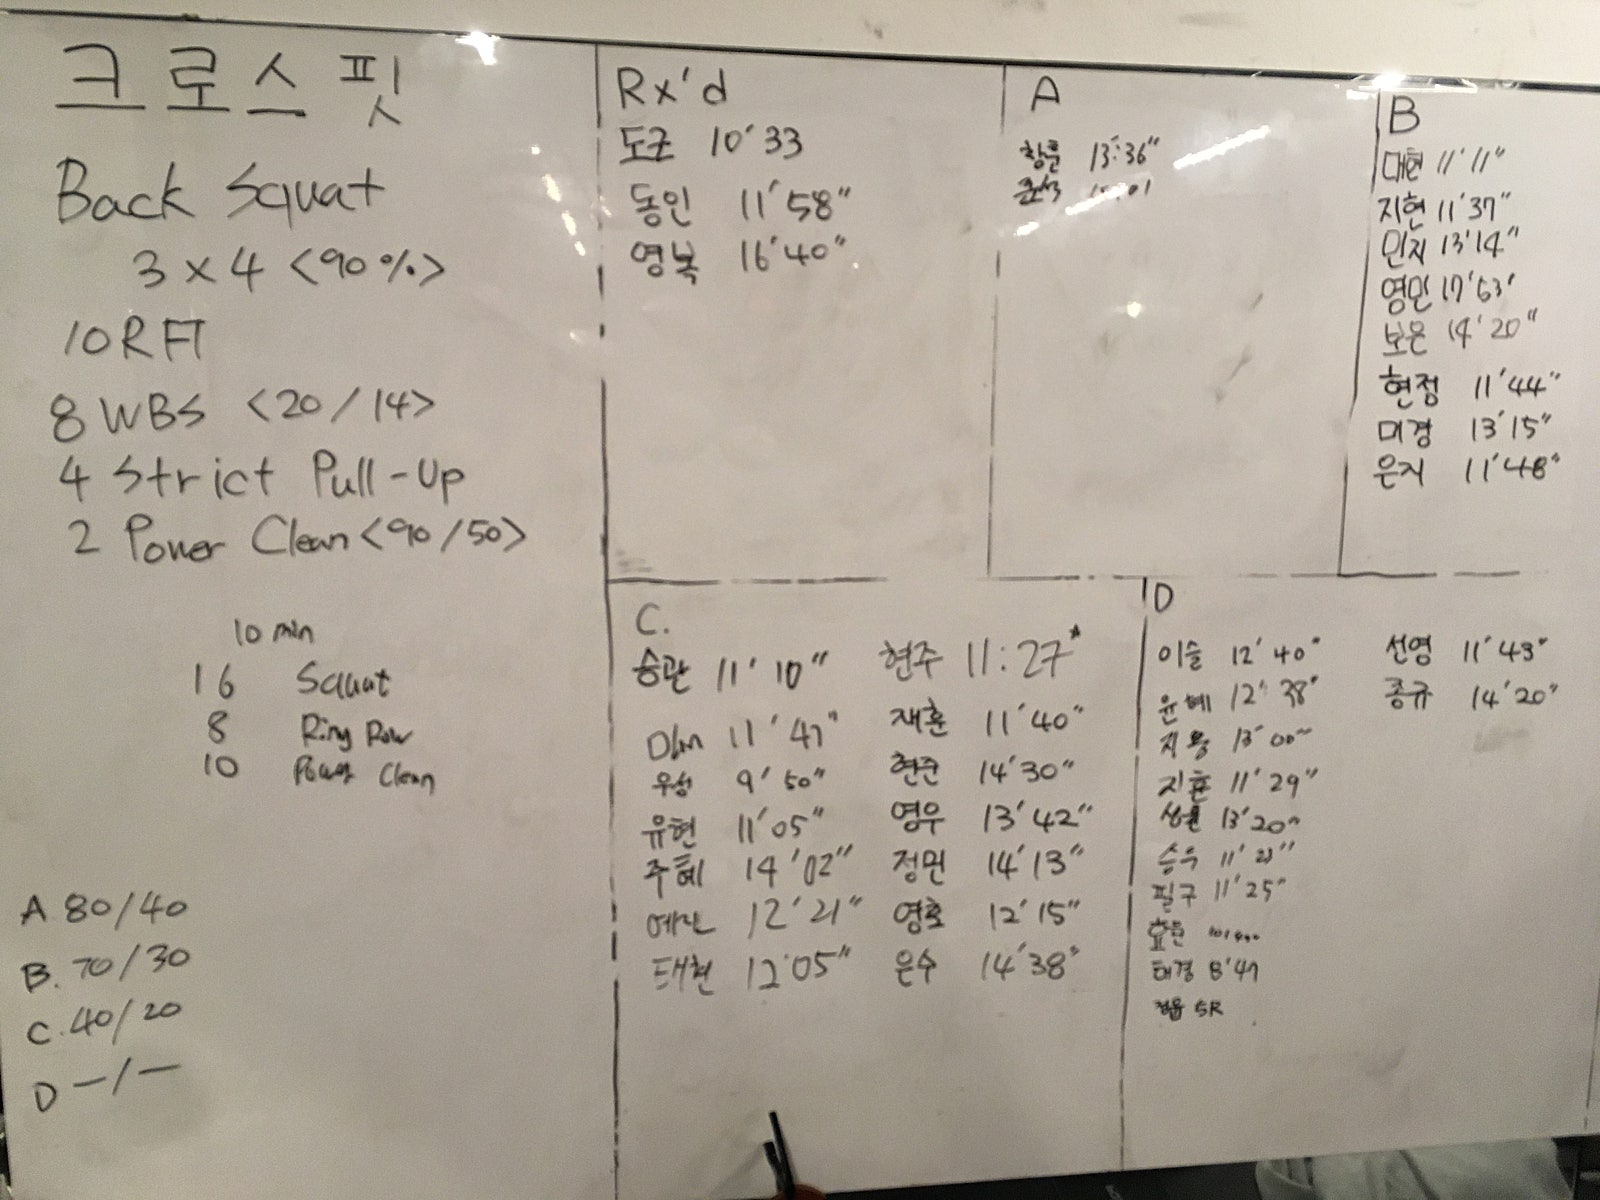 크로스핏
Back Squat
3 x 4 <90%>
10 RFT
8 WBS <20/14>
4 Strict Pull-Up
2 Power Clean <90/50>
10 min
16 Squat
8 Ring Row
10 Power Clean
A 80/40
B. 70/30
C. 40/20
D —/—
Rx'd
도균 10'33
동인 11'58"
영복 16'40"
A
창훈 13'36"
B
대현 11'11"
지현 11'37"
민지 13'14"
영민 17'53"
보은 14'20"
현정 11'44"
미경 13'15"
은지 11'48"
C.
승관 11'10"
11'47"
우성 9'50"
유현 11'05"
주혜 14'02"
예진 12'21"
태현 12'05"
현주 11:27"
재훈 11'40"
현준 14'30"
영우 13'42"
정민 14'13"
영호 12'15"
은수 14'38"
D
이슬 12'40"
윤혜 12'38"
지용 13'00"
지훈 11'29"
13'20"
승우
필구 11'25"
태경 8'47
5R
선영 11'43"
종규 14'20"